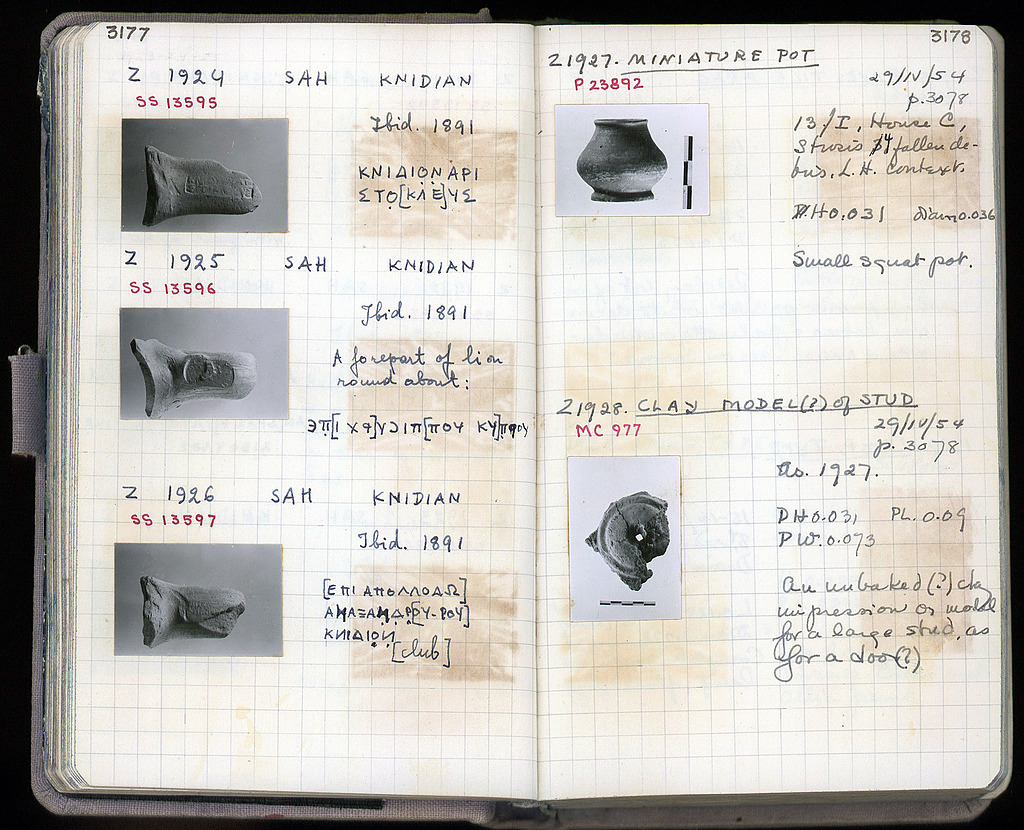 3177
Z 1924 SAH KNIDIAN
SS 13595
Ibid. 1891
ΚΝΙΔΙΟΝΑΡΙ
ΣΤΟ[ΚΛΕ]ΥΣ
Z 1925 SAH KNIDIAN
SS 13596
Ibid. 1891
A forepart of lion
round about:
Z 1926 SAH KNIDIAN
SS 13597
Ibid. 1891
[ΕΠΙ ΑΠΟΛΛΟΔΩ]
ΚΝΙΔΙΟΝ
[club]
3178
Z1927. MINIATURE POT
P 23892
29/IV/54
p.3078
13/I, House C,
fallen de-
bris. L.H. context.
P.H 0.031 diam 0.036
Small squat pot.
Z1928. CLAY MODEL(?) of STUD
MC 977
29/IV/54
p. 3078
As. 1927.
P.H 0.031 PL. 0.09
P.W. 0.073
An unbaked(?) clay
impression or model
for a large stud, as
for a door(?)